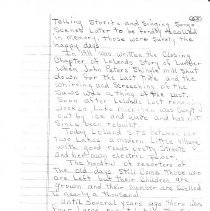 Telling Stories and Singing Songs
Scenes Later to be fondly recalled
in memory. Those were surely the
happy days
It all was written the Closing
Chapter of Lelands Story of Lumber
When John Peters Shingle mill Shut
down for the Last time and the
Whirring and Screeching of the
Saws was a thing of the past.
Soon after Lelands Last Dock
was
out by ice and wave and has not
Since been rebuilt
Today Leland sits between her
Two Lakes a modern Little Village
with good roads pretty Streets
and electric
The handful of
of
the old days Still Come those who
are Left but their Children are
grown and their number are Swelled
to nearly a thousand
Until Several years ago there was
four Large